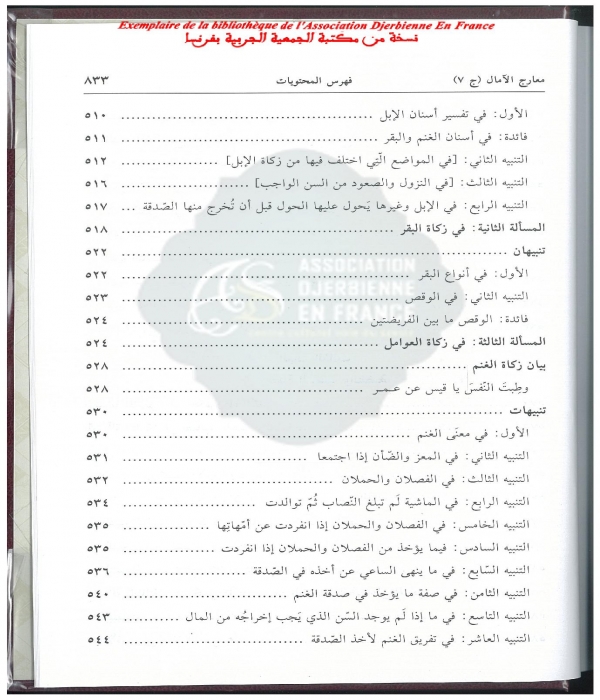 Exemplaire de la bibliothèque de l'Association Djerbienne En France
نسخة من مكتبة الجمعية الجربية بفرنسا
معارج الآمال (ج ٧) فهرس المحتويات ٨٣٣
الأول: في تفسير أسنان الإبل ٥١٠
فائدة: في أسنان الغنم والبقر ٥١١
التنبيه الثاني: [في المواضع الّتِي اختلف فيها من زكاة الإبل] ٥١٢
التنبيه الثالث: [في النزول والصعود من السن الواجب] ٥١٦
التنبيه الرابع: في الإبل وغيرها يَحول عليها الحول قبل أن تُخرج منها الصّدقة ... ٥١٧
المسألة الثانية: في زكاة البقر ٥١٨
تنبيهان ٥٢٢
الأول: في أنواع البقر ٥٢٢
التنبيه الثاني: في الوقص ٥٢٣
فائدة: في الوقص ما بين الفريضتين ٥٢٤
المسألة الثالثة: في زكاة العوامل ٥٢٤
بيان زكاة الغنم ٥٢٨
وطِبتَ النّفسَ يا قيس عن عمر ٥٢٨
تنبيهات ٥٣٠
الأول: في معنَى الغنم ٥٣٠
التنبيه الثاني: في المعز والضّأن إذا اجتمعا ٥٣١
التنبيه الثالث: في الفصلان والحملان ٥٣٢
التنبيه الرابع: في الماشية لَم تبلغ النّصاب ثُمّ توالدت ٥٣٤
التنبيه الخامس: في الفصلان والحملان إذا انفردت عن أمّهاتِها ٥٣٥
التنبيه السادس: فيما يؤخذ من الفصلان والحملان إذا انفردت ٥٣٥
التنبيه السّابع: في ما ينهى الساعي عن أخذه في الصّدقة ٥٣٦
التنبيه الثامن: في صفة ما يؤخذ في صدقة الغنم ٥٤٠
التنبيه التاسع: في ما إذا لَم يوجد السّن الذي يَجب إخراجُه من المال ٥٤٣
التنبيه العاشر: في تفريق الغنم لأخذ الصّدقة ٥٤٤
ASSOCIATION
DJERBIENNE
EN FRANCE